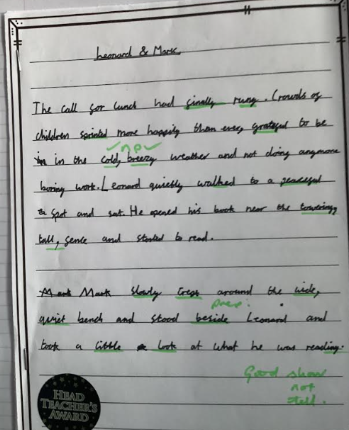 Leonard & Mark
The call for lunch had finally rung. Crowds of
children sprinted more happily than ever, grateful to be
in in the cold, breezy weather and not doing anymore
boring work. Leonard quietly walked to a peaceful
spot and sat. He opened his book near the towering
tall, fence and started to read.
Mark Mark slowly crept around the wide,
prep.
quiet bench and stood beside Leonard and
took a little look at what he was reading.
Good show
not
tell.
HEAD
TEACHER'S
AWARD